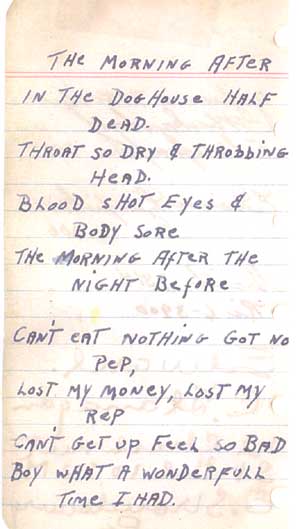 The MORNING AFTER
IN The DOGHOUSE HALF
DeAD.
THROAT SO DRY & THROBBING
HeAD.
BLOOD SHOT EyeS &
BODY SORe
THe MORNING AFTeR THe
NIGHT BeFORe
CAN'T eAT NOTHING GOT NO
PeP,
LOST MY MONey, LOST MY
ReP
CAN'T GeT UP FeeL SO BAD
BOY WHAT A WONDeRFULL
TIMe I HAD.